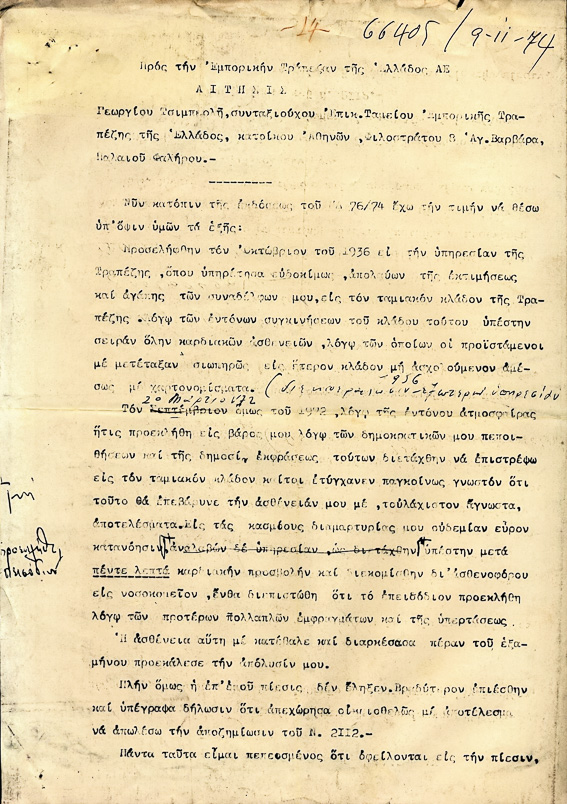 -14-
66405/9-11-74
Πρός τήν Ἐμπορικήν Τράπεζαν τῆς Ἑλλάδος ΑΕ
ΑΙΤΗΣΙΣ
Γεωργίου συνταξιούχου Ἐπικ.Ταμείου Ἐμπορικῆς Τρα-
πέζης τῆς Ἑλλάδος, κατοίκου Ἀθηνῶν ,Φιλοστράτου 8 Ἁγ.Βαρβάρα,
Παλαιοῦ Φαλήρου.-
----------
Νῦν κατόπιν τῆς ἐκδόσεως τοῦ 76/74 ἔχω τήν τιμήν νά θέσω
ὑπ'ὄψιν ὑμῶν τά ἑξῆς:
Προσελήφθην τόν Ὀκτώβριον τοῦ 1936 εἰς τήν ὑπηρεσίαν τῆς
Τραπέζης ,ὅπου ὑπηρέτησα εὐδοκίμως ,ἀπολαύων τῆς ἐκτιμήσεως
καί ἀγάπης τῶν συναδέλφων μου,εἰς τόν ταμιακόν κλάδον τῆς Τρα-
πέζης .Λόγῳ τῶν ἐντόνων συγκινήσεων τοῦ κλάδου τούτου ὑπέστην
σειράν ὅλην καρδιακῶν ἀσθενειῶν ,λόγῳ τῶν ὁποίων οἱ προϊστάμενοι
μέ μετέταξαν σιωπηρῶς εἰς ἕτερον κλάδον μή ἀσχολούμενον ἀμέ-
σως μή χαρτονομίσματα. 1956
20 Μαρτίου
Τόν Σεπτέμβριον ὅμως τοῦ 1972 ,λόγῳ τῆς ἐντόνου ἀτμοσφαίρας
ἥτις προεκλήθη εἰς βάρος μου λόγῳ τῶν δημοκρατικῶν μου πεποι-
θήσεων καί τῆς δημοσί, ἐκφράσεως τούτων διετάχθην νά ἐπιστρέψω
εἰς τόν ταμιακόν κλάδον καίτοι ἐτύγχανεν παγκοίνως γνωστόν ὅτι
τοῦτο θά ἐπεβάρυνε τήν ἀσθένειάν μου μέ ,τοὐλάχιστον ἄγνωστα,
ἀποτελέσματα.Εἰς τάς διαμαρτυρίας μου οὐδεμίαν εὗρον
κατανόησιν ἀναλαβών δέ ὑπηρεσίαν ,ὡς διετάχθην ὑπέστην μετά
πέντε λεπτά καρδιακήν προσβολήν καί διεκομίσθην δι'ἀσθενοφόρου
εἰς νοσοκομεῖον ,ἔνθα διεπιστώθη ὅτι τό ἐπεισόδιον προεκλήθη
λόγῳ τῶν προτέρων πολλαπλῶν ἐμφραγμάτων καί τῆς ὑπερτάσεως
Ἡ ἀσθένεια αὕτη μέ κατέβαλε καί διαρκέσασα πέραν τοῦ ἑξα-
μήνου προεκάλεσε τήν ἀπόλυσίν μου.
Πλήν ὅμως ἡ ἐπ'ἐμοῦ πίεσις δέν ἔληξεν.Βραδύτερον ἐπιέσθην
καί ὑπέγραψα δήλωσιν ὅτι ἀπεχώρησα οἰκειοθελῶς μέ ἀποτέλεσμα
νά ἀπωλέσω τήν ἀποζημίωσιν τοῦ Ν. 2112.-
Πάντα ταῦτα εἶμαι πεπεισμένος ὅτι ὀφείλονται εἰς τήν πίεσιν,